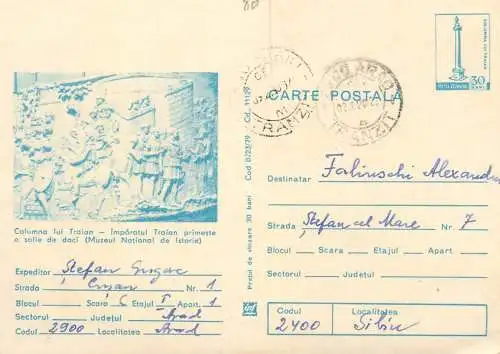 COLUMNA LUI TRAIAN
30
BANI
POSTA ROMANA
CARTE POSTALA
TRANZIT
TRANZIT
Columna lui Traian — Împăratul Traian primește
o solie de daci (Muzeul Național de Istorie)
Prețul de vînzare 30 bani Cod 0/23/79 Cd. 1112
Expeditor Ștefan
Strada Crișan Nr. 1
Blocul Scara C Etajul I Apart. 1
Sectorul Județul Arad
Codul 2900 Localitatea Arad
Destinatar Falinischi Alexandru
Strada Ștefan cel Mare Nr 7
Blocul Scara Etajul Apart
Sectorul Județul
Codul Localitatea
2400 Sibiu